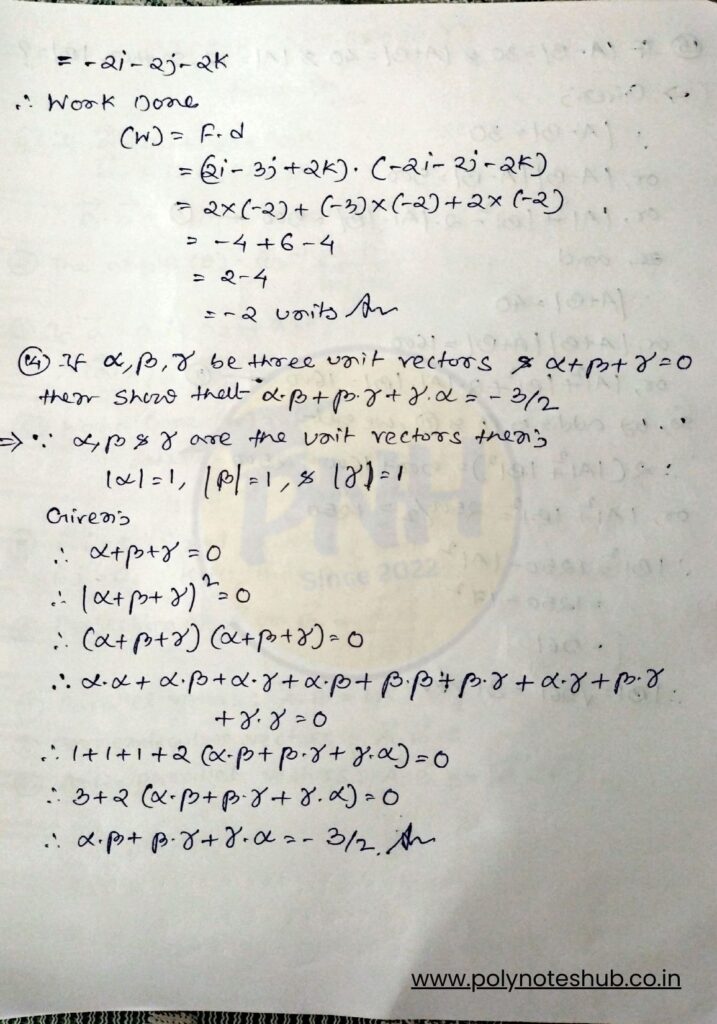 = -2i - 2j - 2k
∴ Work Done
(W) = F.d
= (2i - 3j + 2k). (-2i - 2j - 2k)
= 2×(-2) + (-3)×(-2) + 2×(-2)
= -4 + 6 - 4
= 2-4
= -2 units Ans
(14) If α, β, γ be three unit vectors & α+β+γ=0
then show that α.β + β.γ + γ.α = - 3/2
⇒ ∵ α, β & γ are the unit vectors then,
|α|=1, |β|=1, & |γ|=1
Given,
∴ α+β+γ=0
∴ |α+β+γ|²=0
∴ (α+β+γ) (α+β+γ)=0
∴ α.α + α.β + α.γ + α.β + β.β + β.γ + α.γ + β.γ
+ γ.γ = 0
∴ 1+1+1+2 (α.β + β.γ + γ.α)=0
∴ 3+2 (α.β + β.γ + γ.α)=0
∴ α.β + β.γ + γ.α = - 3/2. Ans
PNH
Since 2022
www.polynoteshub.co.in